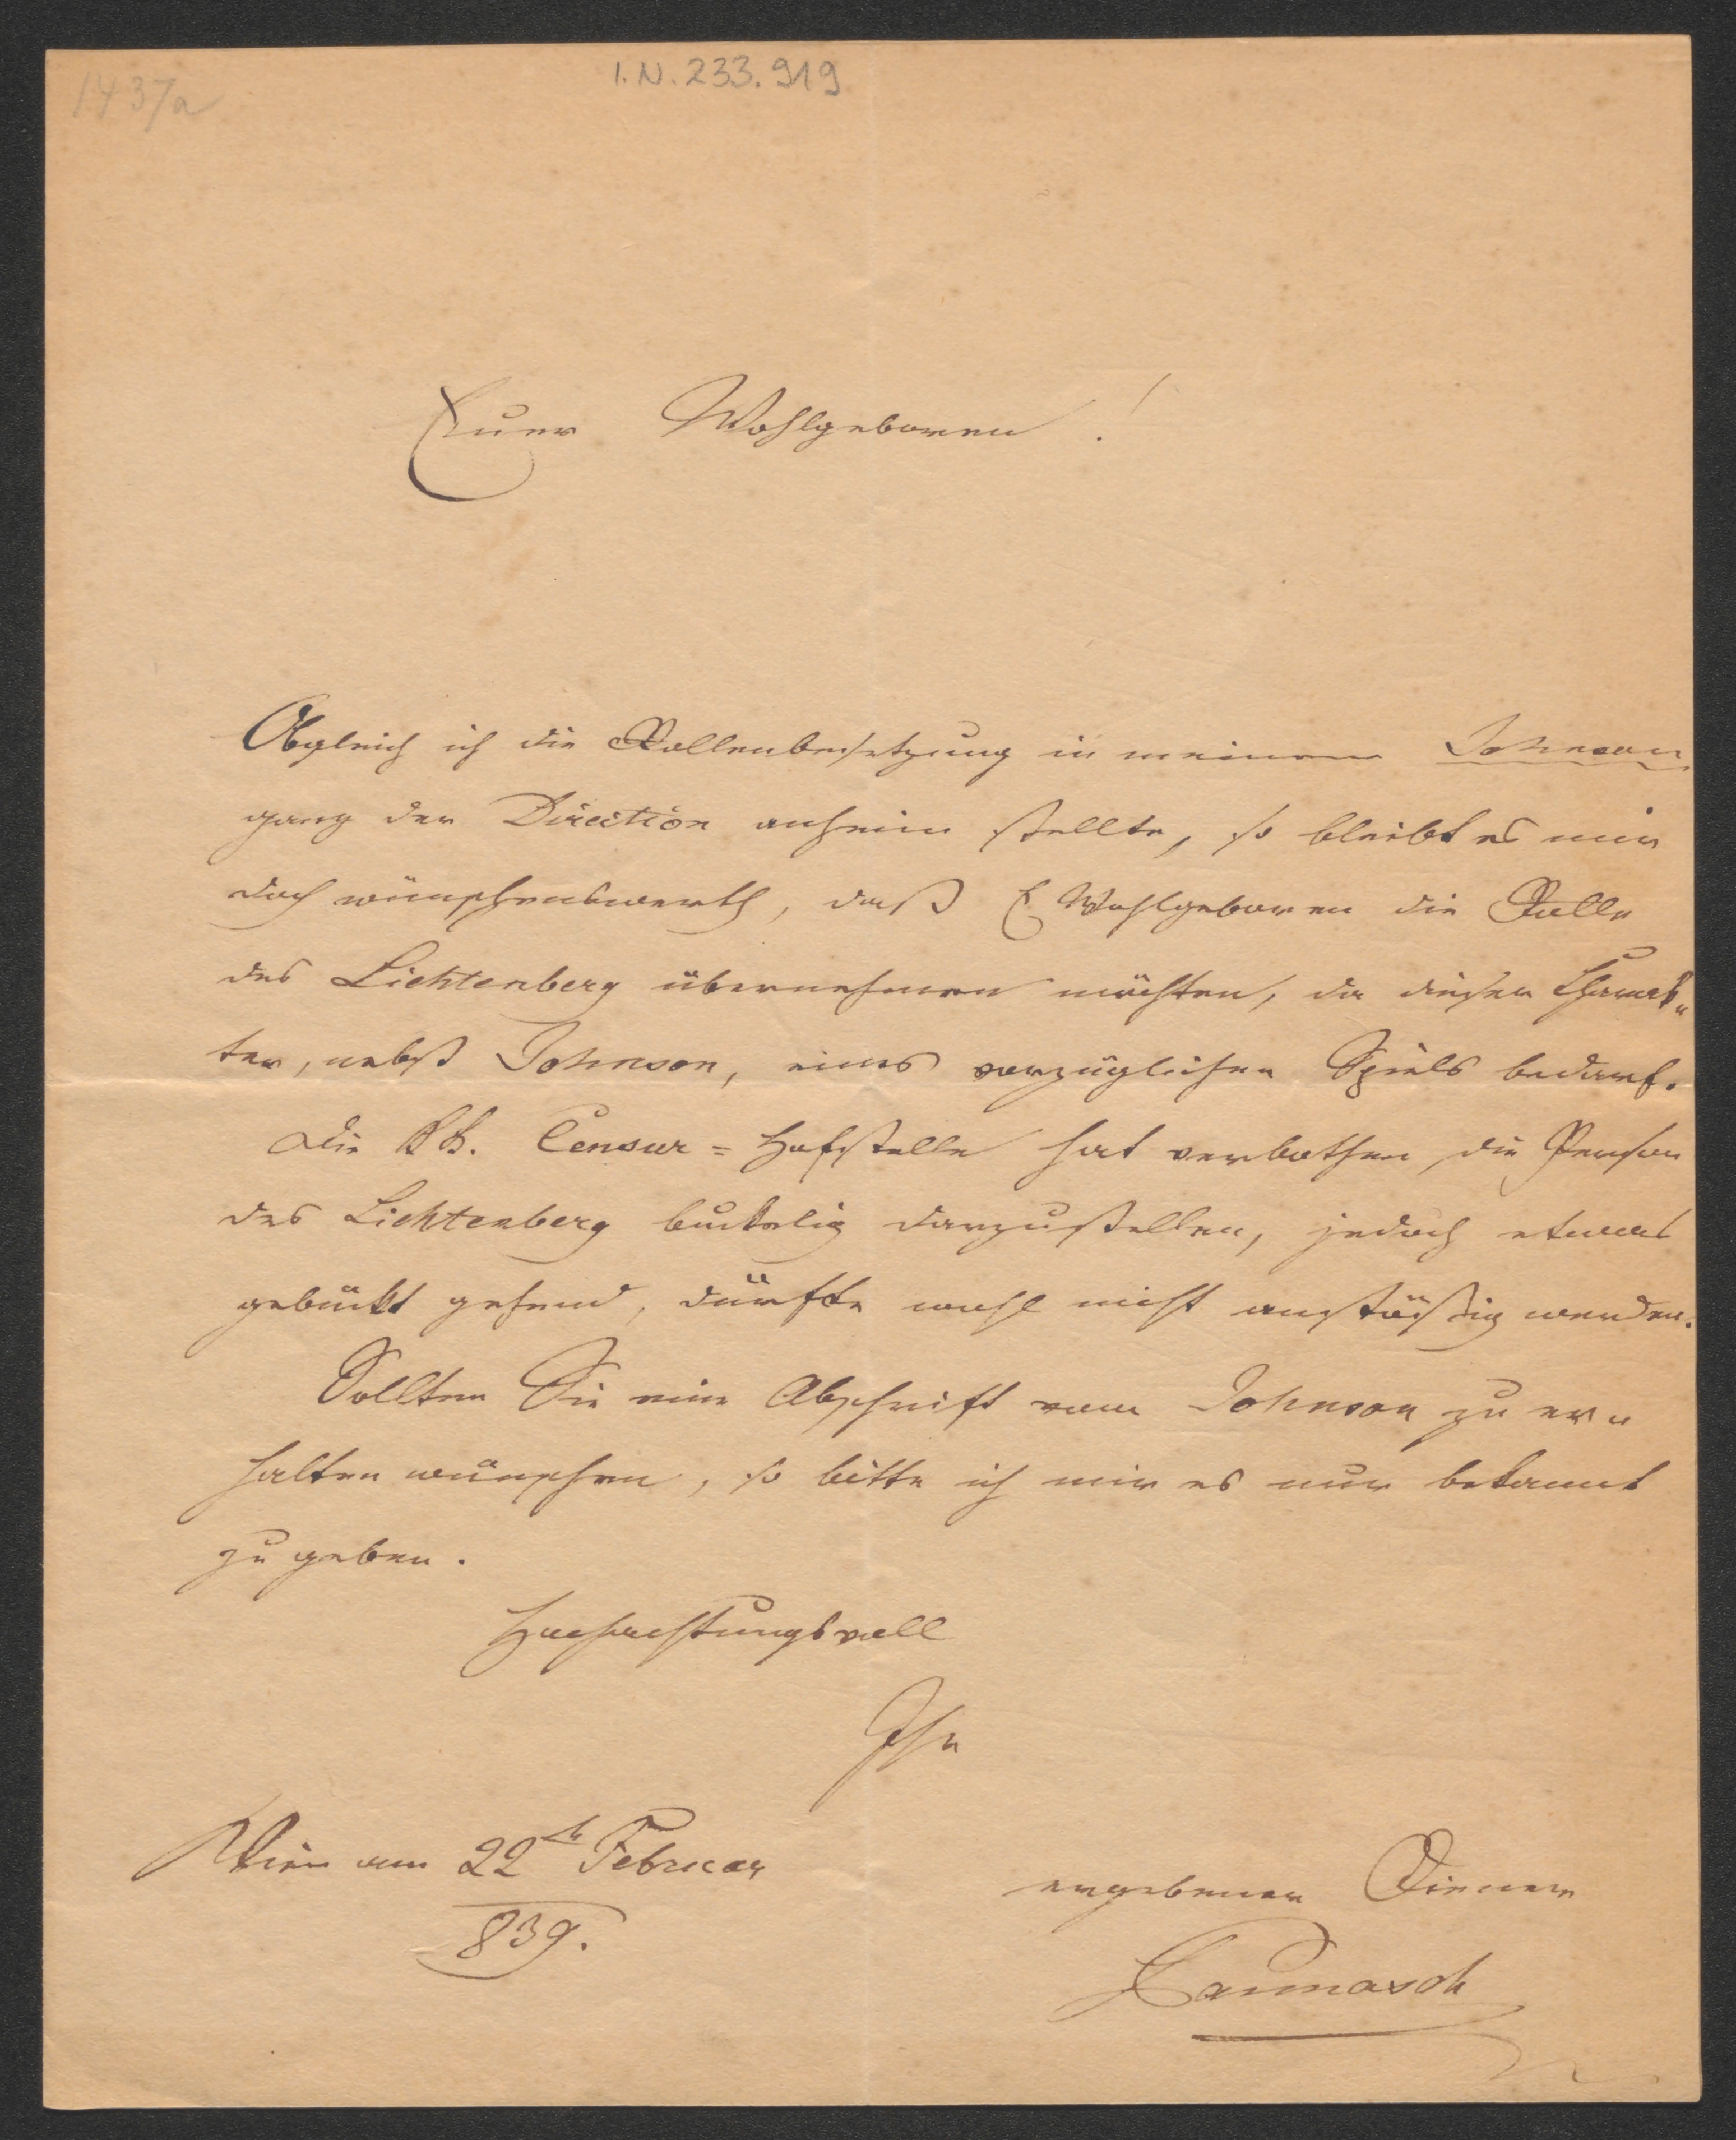 1437a
I.N. 233.919
Euer Wohlgeboren!
Obgleich ich die Rollenbesetzung in meinem Johnson
ganz der Direction anheim stellte, so bleibt es mir
doch wünschenswerth, daß E Wohlgeboren die Rolle
des Lichtenberg übernehmen möchten, da dieser Charak„
ter, nebst Johnson, eines vorzüglichen Spiels bedarf.
Die KK. Censur=Hofstelle hat verbothen, die Person
des Lichtenberg buckelig darzustellen, jedoch etwas
gebückt gehend, dürfte wohl nicht anstößig werden.
Sollten Sie eine Abschrift vom Johnson zu er„
halten wünschen, so bitte ich mir es nur bekannt
zu geben.
Hochachtungsvoll
Ihr
Wien am 22te Februar
839.
ergebener Diener